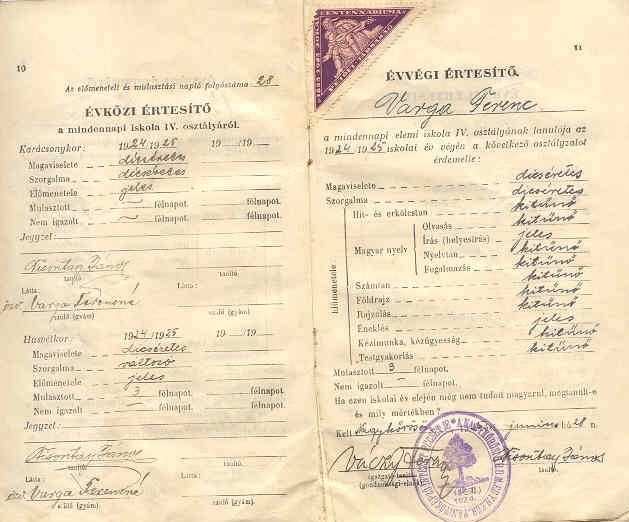 10
Az előmeneteli és mulasztási napló folyószáma 28
ÉVKÖZI ÉRTESÍTŐ
a mindennapi iskola IV. osztályáról.
Karácsonykor: 1924/1925 19 /19
Magaviselete dicséretes
Szorgalma dicséretes
Előmenetele jeles
Mulasztott — félnapot. félnapot.
Nem igazolt — félnapot. félnapot.
Jegyzet:
János
tanító. tanító.
Látta: Látta:
özv. Varga Ferencné
szülő (gyám) szülő (gyám)
Húsvétkor: 1924/1925 19 /19
Magaviselete dicséretes
Szorgalma változó
Előmenetele jeles
Mulasztott 3 félnapot. félnapot.
Nem igazolt — félnapot. félnapot.
Jegyzet:
János
tanító. tanító.
Látta: Látta:
özv. Varga Ferencné
szülő (gyám) szülő (gyám).
11
ÉVVÉGI ÉRTESITŐ.
Varga Ferenc
a mindennapi elemi iskola IV. osztályának tanulója az
1924/1925 iskolai év végén a következő osztályzatot
érdemelte:
Magaviselete dicséretes
Szorgalma dicséretes
Előmenetele
Hit- és erkölcstan kitünő
Magyar nyelv
Olvasás kitünő
Írás (helyesírás) jeles
Nyelvtan kitünő
Fogalmazás kitünő
Számtan kitünő
Földrajz kitünő
Rajzolás kitünő
Éneklés jeles
Kézimunka, kézügyesség kitünő
Testgyakorlás kitünő
Mulasztott 3 félnapot.
Nem igazolt — félnapot.
Ha ezen iskolai év elején még nem tudott magyarul, megtanult-e
és mily mértékben?
Kelt Nagykőrös junius hó 21 n.
János
tanító.